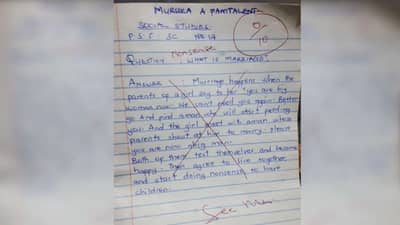 MURSRA A PANITALENT
SOCIAL STUDIES
P.S.F. SC No 14
0/10
nonsense
QUESTION: WHAT IS MARRIAGE?
ANSWER: Marriage happens when the
parents of a girl say to her "you are big
woman now. We can't feed you again. Better
go and find a man who will start feeding
you. And the girl meet with a man whose
parents shout at him to marry, please
you are now a big man.
Both of them test themselves and become
happy. Then agree to live together
and start doing nonsense to have
children.
See me